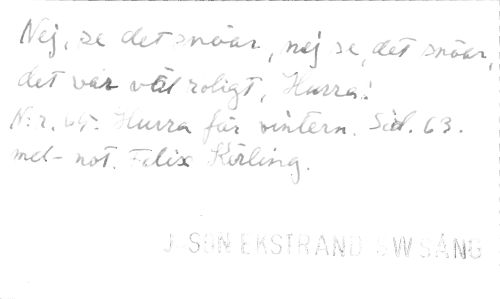 Nej, se det snöar, nej se, det snöar,
det var väl roligt, Hurra!
N:r. 45. Hurra för vintern. Sid. 63.
med not. Felix Körling.
J SON EKSTRAND WSÅNG